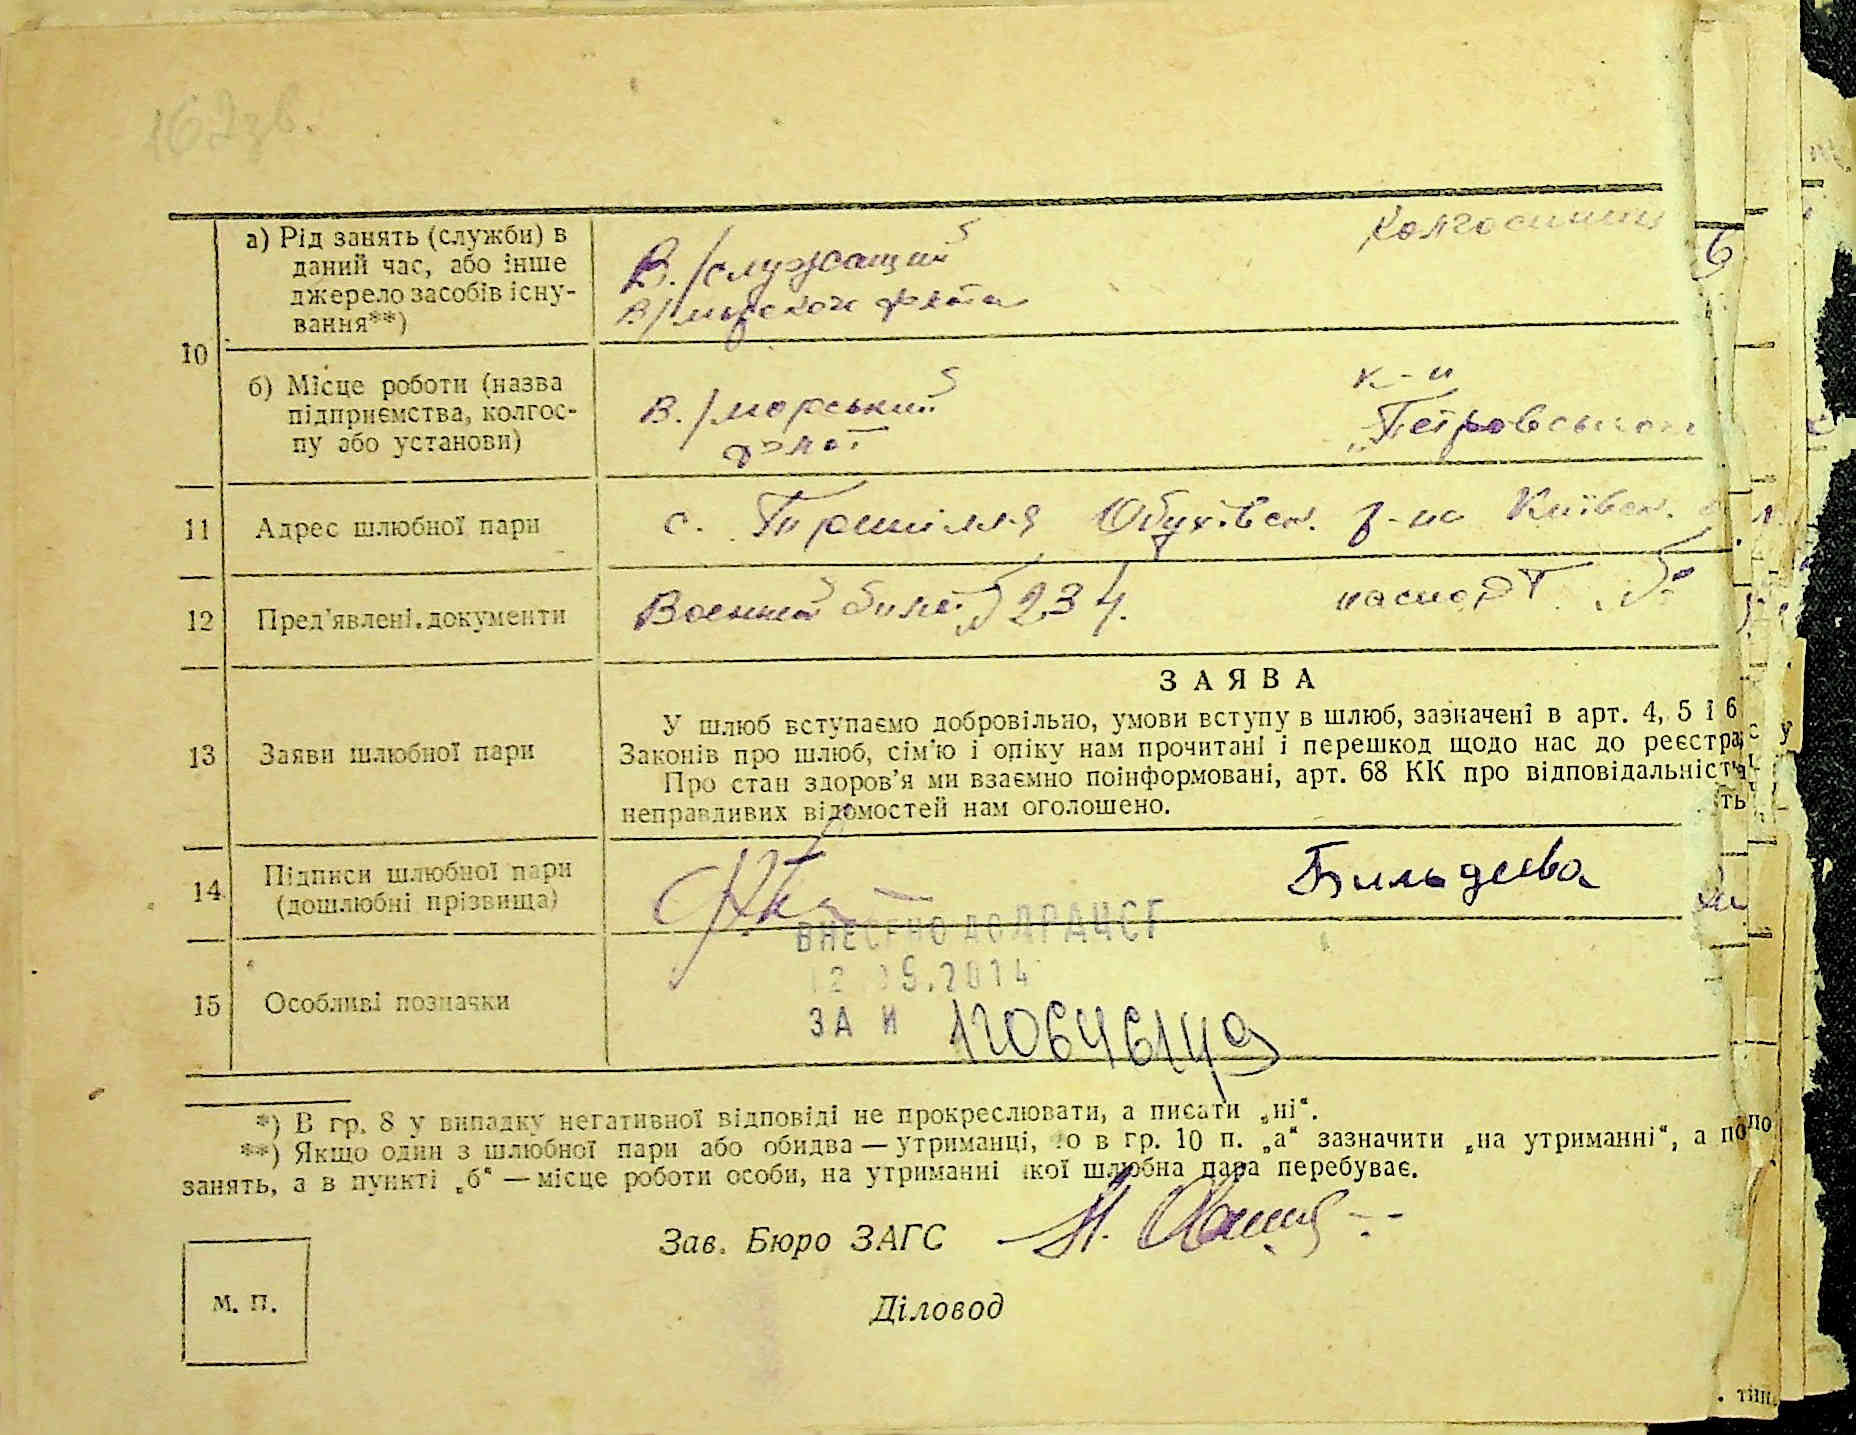 162зв.
10
а) Рід занять (служби) в
даний час, або інше
джерело засобів існу-
вання**)
В./служащий
В/морского флота
Колгоспниц
б) Місце роботи (назва
підприємства, колгос-
пу або установи)
В./морський
флот
к-п
„Петровського
11
Адрес шлюбної пари
с. Трипілля Обухівськ. р-на Київськ.
12
Пред'явлені документи
Военный билет № 234.
паспорт
13
Заяви шлюбної пари
ЗАЯВА
У шлюб вступаємо добровільно, умови вступу в шлюб, зазначені в арт. 4, 5 і 6
Законів про шлюб, сім'ю і опіку нам прочитані і перешкод щодо нас до реєстра
Про стан здоров'я ми взаємно поінформовані, арт. 68 КК про відповідальність
неправдивих відомостей нам оголошено.
14
Підписи шлюбної пари
(дошлюбні прізвища)
ВНЕСЕНО ДО ДРАЦСГ
2014
ЗА И
15
Особливі позначки
*) В гр. 8 у випадку негативної відповіді не прокреслювати, а писати „ні“.
**) Якщо один з шлюбної пари або обидва — утриманці, то в гр. 10 п. „а“ зазначити „на утриманні“, а по
занять, а в пункті „б“ — місце роботи особи, на утриманні якої шлюбна пара перебуває.
Зав. Бюро ЗАГС
М. П.
Діловод
тип.